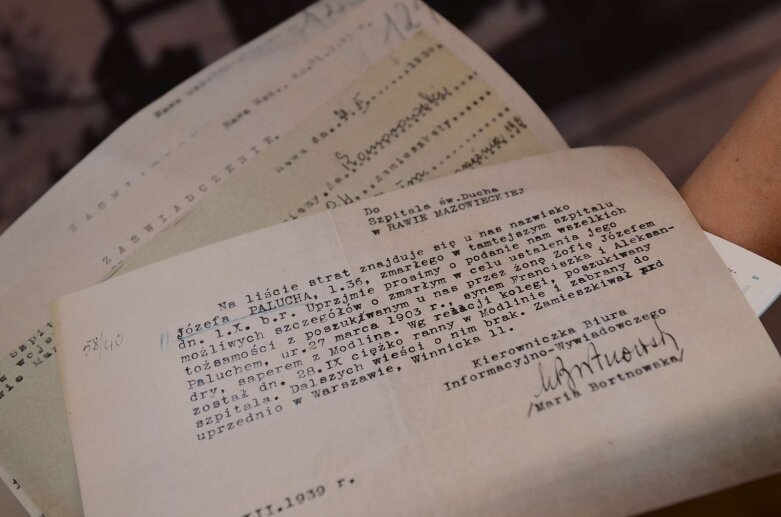 ZAŚWIADCZENIE.
1939.
58/40
Do
Szpitala św.Ducha
w RAWIE MAZOWIECKIEJ
Na liście strat znajduje się u nas nazwisko
Józefa PALUCHA, l.36, zmarłego w tamtejszym szpitalu
dn. 1.X. b.r. Uprzjmie prosimy o podanie nam wszelkich
możliwych szczegółów o zmarłym w celu ustalenia jego
tożsamości z poszukiwanym u nas przez żonę Zofię Józefem
Paluchem, ur.27 marca 1903 r., synem Franciszka i Aleksan-
dry, saperem z Modlina. Wg relacji kolegi, poszukiwany
został dn. 28.IX ciężko ranny w Modlinie i zabrany do
szpitala. Dalszych wieści o nim brak. Zamieszkiwał
uprzednio w Warszawie, Winnicka 11.
Kierowniczka Biura
Informacyjno-Wywiadowczego
MBortnowska
/Maria Bortnowska/
II.1939 r.